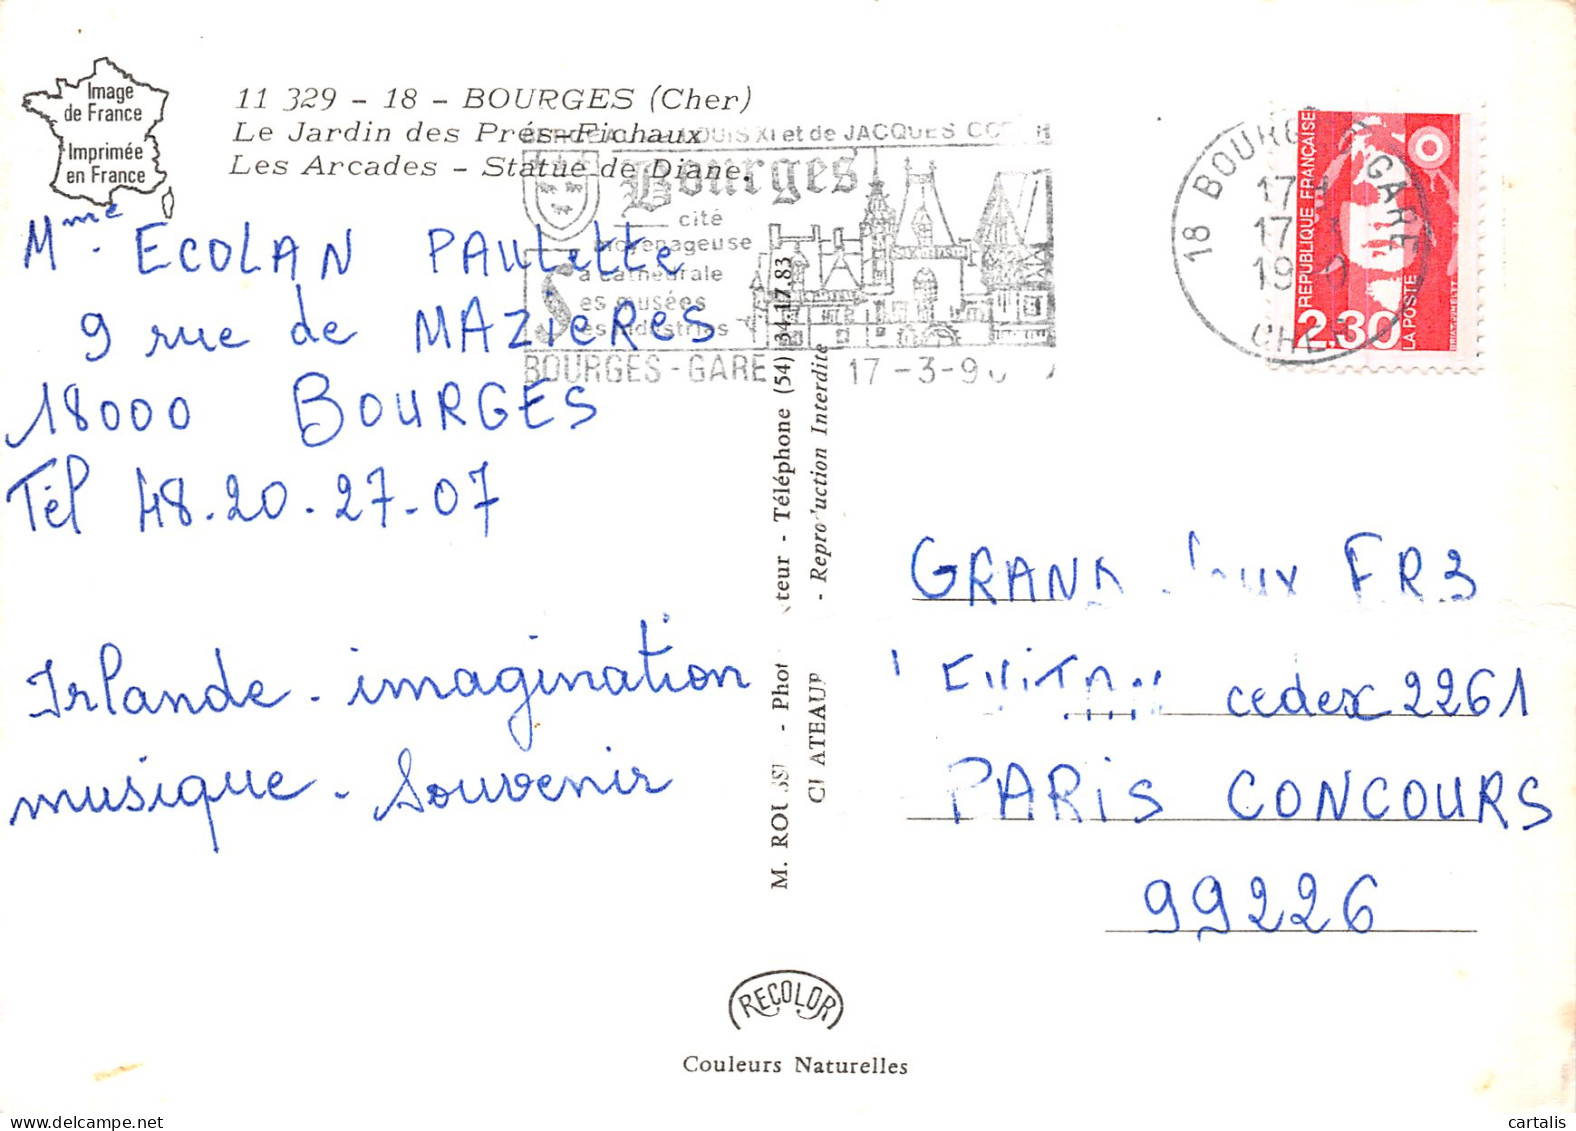 Image
de France
Imprimée
en France
11 329 - 18 - BOURGES (Cher)
Le Jardin des Prés-Fichaux
Les Arcades - Statue de Diane.
XI et de JACQUES
Bourges
cité
moyenageuse
cathédrale
es musées
es industries
BOURGES - GARE 17 -3-90
18 BOURGES GARE
17
17
19
CHER
RÉPUBLIQUE FRANÇAISE
2.30
LA POSTE
Mme. ECOLAN PAULette
9 rue de MAZieRES
18000 BOURGES
Tél 48.20.27.07
Irlande - imagination
musique - Souvenir
M. ROUSSEL - Photo teur - Téléphone (54) 34.17.83
- Reproduction Interdite
GRAND FR3
cedex 2261
PARiS CONCOURS
99226
RECOLOR
Couleurs Naturelles
cartalis